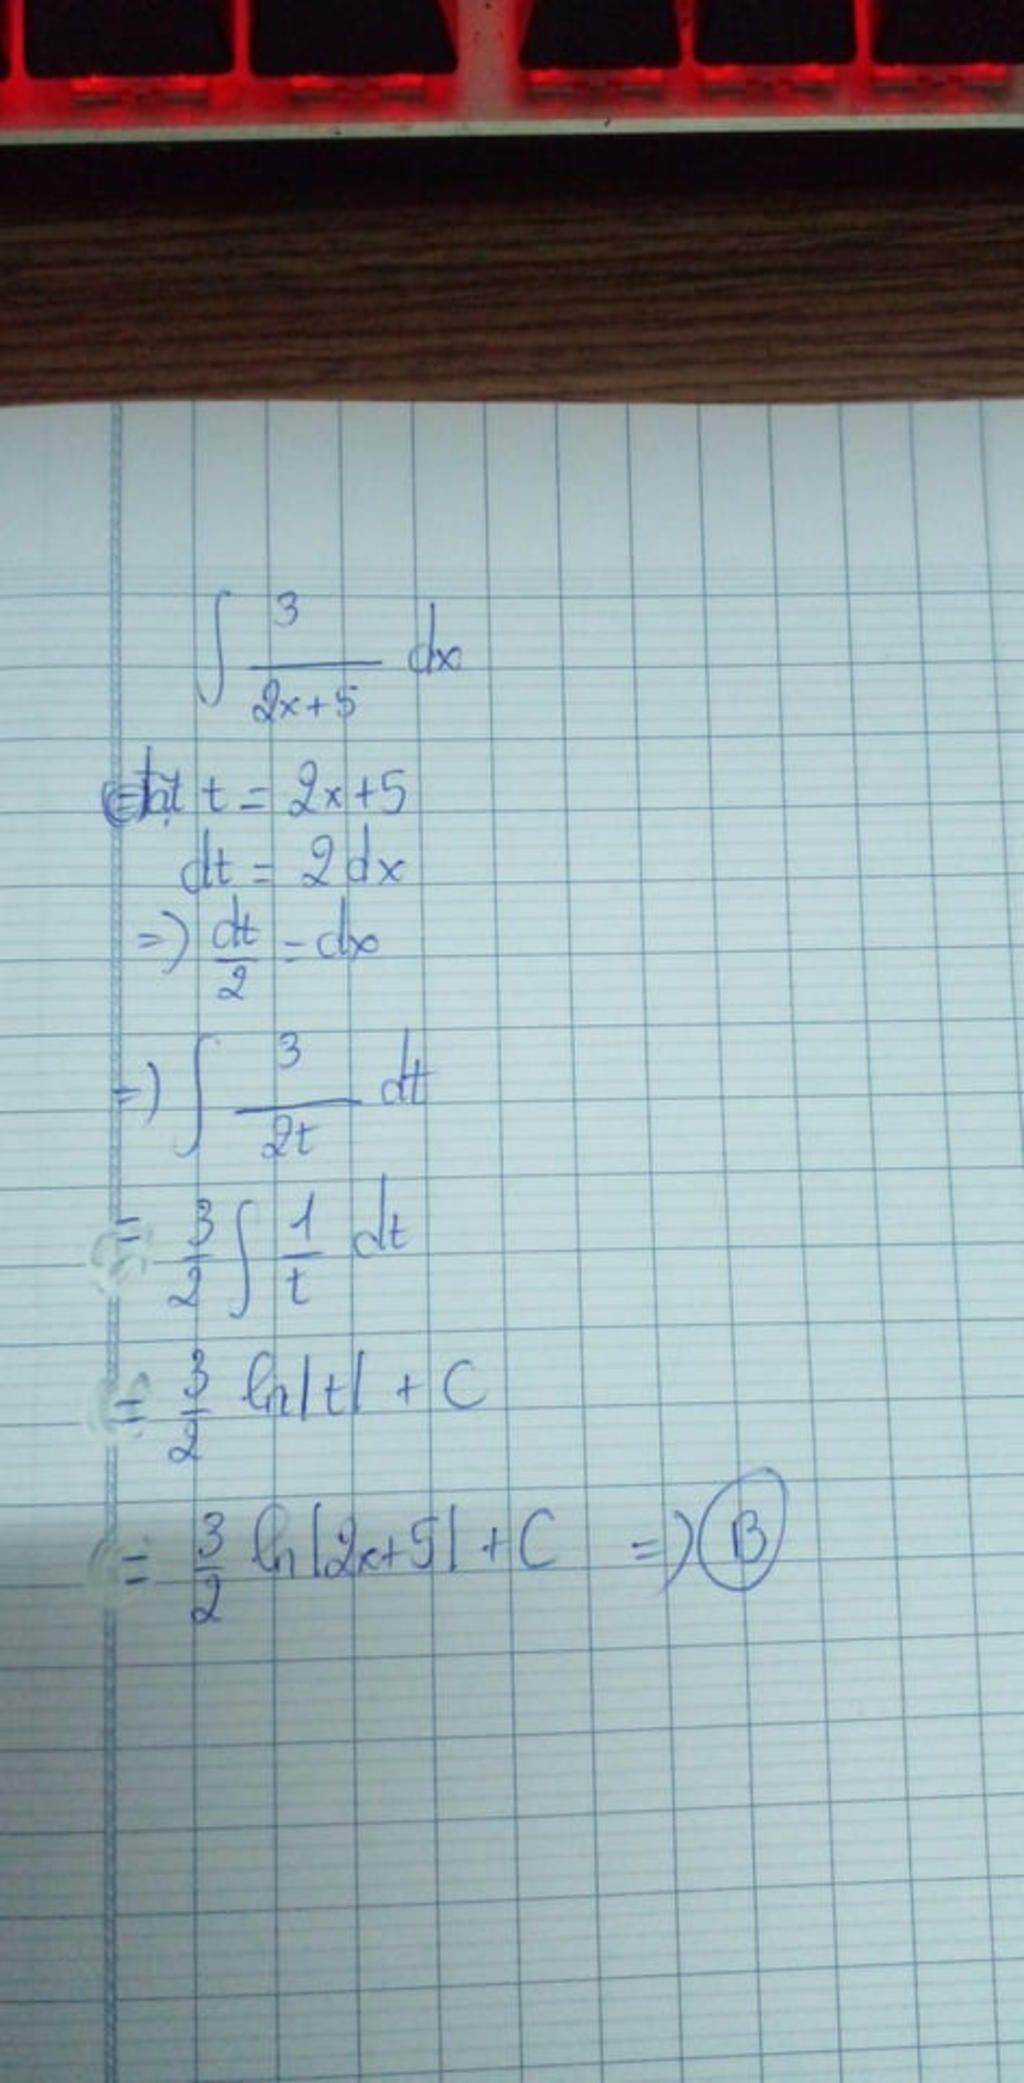 ∫ 3/(2x+5) dx
đặt t = 2x+5
dt = 2dx
=> dt/2 = dx
=> ∫ 3/(2t) dt
= 3/2 ∫ 1/t dt
= 3/2 ln|t| + C
= 3/2 ln|2x+5| + C => B